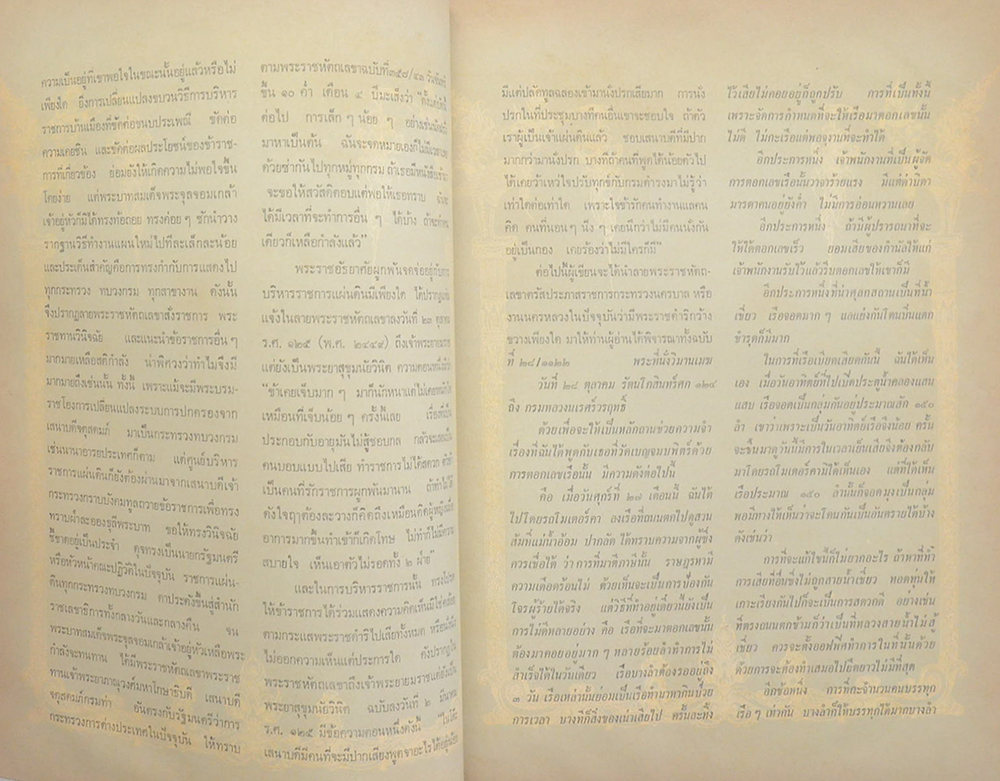 ความเป็นอยู่ที่เขาพอใจในขณะนั้นอยู่แล้วหรือไม่
เพียงใด ยิ่งการเปลี่ยนแปลงขบวนวิธีการบริหาร
ราชการบ้านเมืองที่ขัดต่อขนบประเพณี ขัดต่อ
ความเคยชิน และขัดต่อผลประโยชน์ของข้าราช-
การที่เกี่ยวข้อง ย่อมยังให้เกิดความไม่พอใจขึ้น
โดยง่าย แต่พระบาทสมเด็จพระจุลจอมเกล้า
เจ้าอยู่หัวก็มิได้ทรงท้อถอย ทรงค่อยๆ ชักนำวาง
รากฐานวิธีทำงานแผนใหม่ไปทีละเล็กละน้อย
และประเด็นสำคัญคือการทรงกำกับการแสดงไป
ทุกกระทรวง ทบวงกรม ทุกสาขางาน ดังนั้น
จึงปรากฏลายพระราชหัตถเลขาสั่งราชการ พระ
ราชทานวินิจฉัย และแนะนำข้อราชการอื่น ๆ
มากมายเหลือสติกำลัง น่าพิศวงว่าทำไมจึงมี
มากมายถึงเช่นนั้น ทั้งนี้ เพราะแม้จะมีพระบรม-
ราชโองการเปลี่ยนแปลงระบบการปกครองจาก
เสนาบดีจตุสดมภ์ มาเป็นกระทรวงทบวงกรม
เช่นนานาอารยประเทศก็ตาม แต่ศูนย์บริหาร
ราชการแผ่นดินก็ยังต้องผ่านมาจากเสนาบดีเจ้า
กระทรวงกราบบังคมทูลถวายข้อราชการเพื่อทรง
ทราบฝ่าละอองธุลีพระบาท ขอให้ทรงวินิจฉัย
ชี้ขาดอยู่เป็นประจำ ดุจทรงเป็นนายกรัฐมนตรี
หรือหัวหน้าคณะปฏิวัติในปัจจุบัน ราชการแผ่น-
ดินทุกกระทรวงทบวงกรม ดาประดังขึ้นสู่สำนัก
ราชเลขาธิการทั้งกลางวันและกลางคืน จน
พระบาทสมเด็จพระจุลจอมเกล้าเจ้าอยู่หัวเหลือพระ
กำลังจะทนทาน ได้มีพระราชหัตถเลขาพระราช
ทานเจ้าพระยาภาณุวงศ์มหาโกษาธิบดี เสนาบดี
จตุสดมภ์กรมท่า อันตรงกับรัฐมนตรีว่าการ
กระทรวงการต่างประเทศในปัจจุบัน ให้ทราบ
ตามพระราชหัตถเลขาฉบับที่๓๕๘/๔๓ วันจันทร์
ขึ้น ๑๐ ค่ำ เดือน ๔ ปีมะเส็งว่า
ต่อไป การเล็ก ๆ น้อย ๆ อย่างเช่น
มาหาเป็นต้น ฉันจะจดหมายเองก็ไม่มีเวลา
ด้วยซ้ำกันไปทุกหมู่ทุกกรม ถ้าเธอมีหนังสือ
จะขอให้สวัสดิตอบแต่พอให้เธอทราบ
ได้มีเวลาที่จะทำการอื่น ๆ ได้บ้าง ถ้าจะทำ
เดียวก็เหลือกำลังแล้ว”
พระราชอัธยาศัยผูกพันจดจ่ออยู่กับการ
บริหารราชการแผ่นดินมีเพียงใด ได้ปรากฏ
แจ้งในลายพระราชหัตถเลขาลงวันที่ ๒๓ ตุลาคม
ร.ศ. ๑๒๕ (พ.ศ. ๒๔๔๙) ถึงเจ้าพระยายมราช
แต่ยังเป็นพระยาสุขุมนัยวินิต ความตอนหนึ่ง
“ข้าเคยเจ็บมาก ๆ มาก็นักหนาแต่ไม่เคย
เหมือนที่เจ็บน้อย ๆ ครั้งนี้เลย
ประกอบกับอายุมันไม่สู้ชอบกล กลัวจะ
คนบอบแบบไปเสีย ทำราชการไม่ได้สดวก
เป็นคนที่รักราชการผูกพันมานาน ถ้าทำไม่ได้
ดังใจฤๅต้องละวางก็คิดถึงเหมือนคิดผู้หญิง
อาการมากขึ้นทำเข้าก็เกิดโทษ ไม่ทำก็ไม่มีความ
สบายใจ เห็นเอาตัวไม่รอดทั้ง ๒ ฝ่าย”
และในการบริหารราชการนั้น ทรง
ให้ข้าราชการได้ร่วมแสดงความคิดเห็นมิใช่
ตามกระแสพระราชดำริไปเสียทั้งหมด หรือ
ไม่ออกความเห็นแต่ประการใด ดังปรากฏ
พระราชหัตถเลขาถึงเจ้าพระยายมราชแต่ยังเป็น
พระยาสุขุมนัยวินิต ฉบับลงวันที่ ๒ มีนาคม
ร.ศ. ๑๒๕ มีข้อความตอนหนึ่งดังนี้
เสนาบดีมีคนที่จะมีปากเสียงพูดจาอะไรได้
มีแต่ปลัดทูลฉลองเข้ามานั่งปรกเสียมาก การนั่ง
ปรกในที่ประชุมบางทีคนอื่นเขาจะชอบใจ ถ้าตัว
เราผู้เป็นเจ้าแผ่นดินแล้ว ชอบเสนาบดีที่มีปาก
มากกว่ามานั่งปรก บางทีถ้าคนที่พูดได้น้อยตัวไป
ได้เคยว่าเหว่ใจปรับทุกข์กับกรมดำรงมาไม่รู้ว่า
เท่าใดต่อเท่าใด เพราะใจข้ารักคนทำงานแลคน
คิด คนที่นอน ๆ นั่ง ๆ เคยนึกว่าไม่มีคนนั่งกัน
อยู่เป็นกอง เคยร้องว่าไม่มีใครก็มี”
ต่อไปนี้ผู้เขียนจะได้นำลายพระราชหัตถ-
เลขาตรัสประภาสราชการกระทรวงนครบาล หรือ
งานนครหลวงในปัจจุบันว่ามีพระราชดำริกว้าง
ขวางเพียงใด มาให้ท่านผู้อ่านได้พิจารณาทั้งฉบับ
ที่ ๒๘/๑๑๒๒ พระที่นั่งวิมานเมฆ
วันที่ ๒๘ ตุลาคม รัตนโกสินทร์ศก ๑๒๔
ถึง กรมหลวงนเรศร์วรฤทธิ์
ด้วยเพื่อจะให้เป็นพลักถานช่วยความจำ
เรื่องที่ฉันได้พูดกับเธอที่วัดเบญจมบพิตร์ด้วย
การตอกเลขเรือนั้น มีความดังต่อไปนี้
คือ เมื่อวันศุกร์ที่ ๒๗ เดือนนี้ ฉันได้
ไปโดยรถโมเตอร์คา ลงเรือที่ถนนตกไปดูสวน
ส้มที่แม่น้ำอ้อม ปากลัด ได้ทราบความจากผู้ซึ่ง
ควรเชื่อได้ ว่าการที่มาตีภาษีนั้น ราษฎรหามี
ความเดือดร้อนไม่ ด้วยเห็นจะเป็นการป้องกัน
โจรผู้ร้ายได้จริง แต่วิธีที่ทำอยู่เดี๋ยวนี้ยังเป็น
การไม่ดีหลายอย่าง คือ เรือที่จะมาตอกเลขนั้น
ต้องมาคอยอยู่มาก ๆ หลายร้อยลำทำการไม่
สำเร็จได้ในวันเดียว เรือบางลำต้องรออยู่ถึง
๓ วัน เรือเหล่านั้นย่อมเป็นเรือทำมาหากินป่วย
การเวลา บางทีก็สิ่งของเน่าเสียไป ครั้นละทิ้ง
ไว้เสียไม่คอยอยู่ก็ถูกปรับ การที่เป็นทั้งนี้
เพราะจัดการกำหนดที่จะให้เรือมาตอกเลขนั้น
ไม่ดี ไม่กะเรือแต่พองานที่จะทำได้
อีกประการหนึ่ง เจ้าพนักงานที่เป็นผู้จัด
การตอกเลขเรือนั้นวาจาร้ายแรง มีแต่ด่าบิดา
มารดาคนอยู่ยังค่ำ ไม่มีการอ่อนหวานเลย
อีกประการหนึ่ง ถ้ามีผู้ปรารถนาที่จะ
ให้ได้ตอกเลขเร็ว ยอมเสียของกำนันให้แก่
เจ้าพนักงานรับไว้แล้วรีบตอกเลขให้เขาก็มี
อีกประการหนึ่งที่น่าศุลกสถานเป็นที่น้ำ
เชี่ยว เรือจอดมาก ๆ แย่งกันโดนบิ่นแตก
ชำรุดก็มีมาก
ในการที่เรือเบียดเสียดกันนี้ ฉันได้เห็น
เอง เมื่อวันอาทิตย์ที่ไปเปิดประตูน้ำคลองแสน
แสบ เรือจอดเป็นกลุ่มกันอยู่ประมาณสัก ๑๕๐
ลำ เขาว่าเพราะเป็นวันอาทิตย์เรือจึงน้อย ครั้น
จะขึ้นมาดูวันนี้มีการในเวลาเย็นเสียจึงต้องกลับ
มาโดยรถโมเตอร์คามิได้เห็นเอง แต่ที่ได้เห็น
เรือประมาณ ๑๕๐ ลำนั้นก็จอดมุงเป็นกลุ่ม
พอมีทางให้เห็นว่าจะโดนกันเป็นอันตรายได้บ้าง
ดังเช่นว่า
การที่จะแก้ไขนี้ก็ไม่ยากอะไร ถ้าหาที่ทำ
การเสียที่อื่นซึ่งไม่ถูกสายน้ำเชี่ยว ทอดทุ่นให้
เกาะเรียงกันไปก็จะเป็นการสดวกดี อย่างเช่น
ที่ตรงถนนตกข้ามก็ว่าเป็นที่หลวงสายน้ำไม่สู้
เชี่ยว ควรจะตั้งออฟฟิศทำการในที่นั้นด้วย
ด้วยการจะต้องทำเสมอไปถึงยาวไม่มีที่สุด
อีกข้อหนึ่ง การที่กะจำนวนคนบรรทุก
เรือ ๆ เท่ากัน บางลำก็ให้บรรทุกได้มากบางลำ